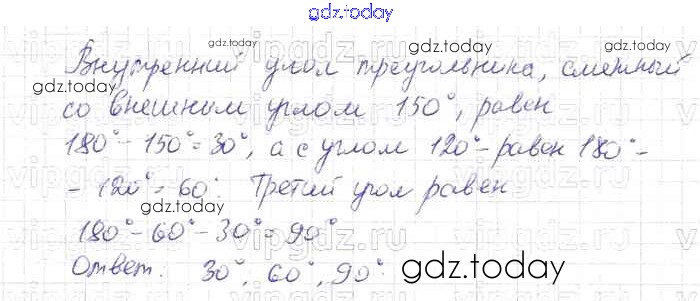 gdz.today
gdz.today
Внутренний угол треугольника, смежный
со внешним углом 150°, равен
180° - 150° = 30°, а с углом 120° - равен 180° -
- 120° = 60°. Третий угол равен
gdz.today
gdz.today
180° - 60° - 30° = 90°
Ответ: 30°, 60°, 90°.
gdz.today